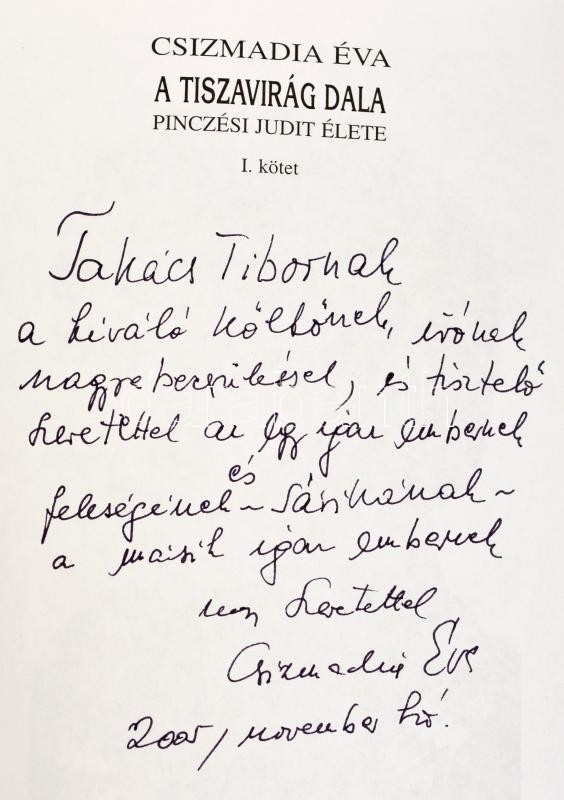 CSIZMADIA ÉVA
A TISZAVIRÁG DALA
PINCZÉSI JUDIT ÉLETE
I. kötet
Takács Tibornak
a kiváló költőnek, írónak
nagyrabecsüléssel, és tisztelő
szeretettel az Egy igaz embernek
és
feleségének ~ Sárikának ~
a másik igaz embernek
nagy szeretettel
Csizmadia Éva
2005, november hó.